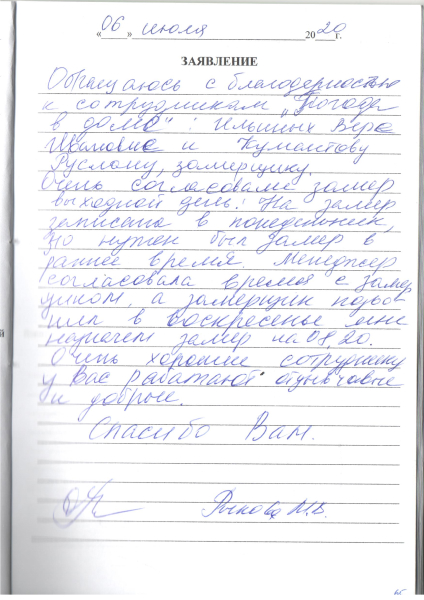 «06» июля 2020г.
ЗАЯВЛЕНИЕ
Обращаюсь с благодарностью
к сотрудникам „Погода
в доме": Ильиных Вере
Ивановне и Кумантову
Руслану, замерщику.
Очень согласовали замер
выходной день! На замер
записана в понедельник,
но нужен был замер в
раннее время. Менеджер
согласовала время с замер
щиком, а замерщик позвов
нил в воскресенье мне
назначен замер на 08.20.
Очень хорошие сотрудники
у Вас работают отзывчивые
и добрые.
Спасибо Вам.
Рыкова М.В.